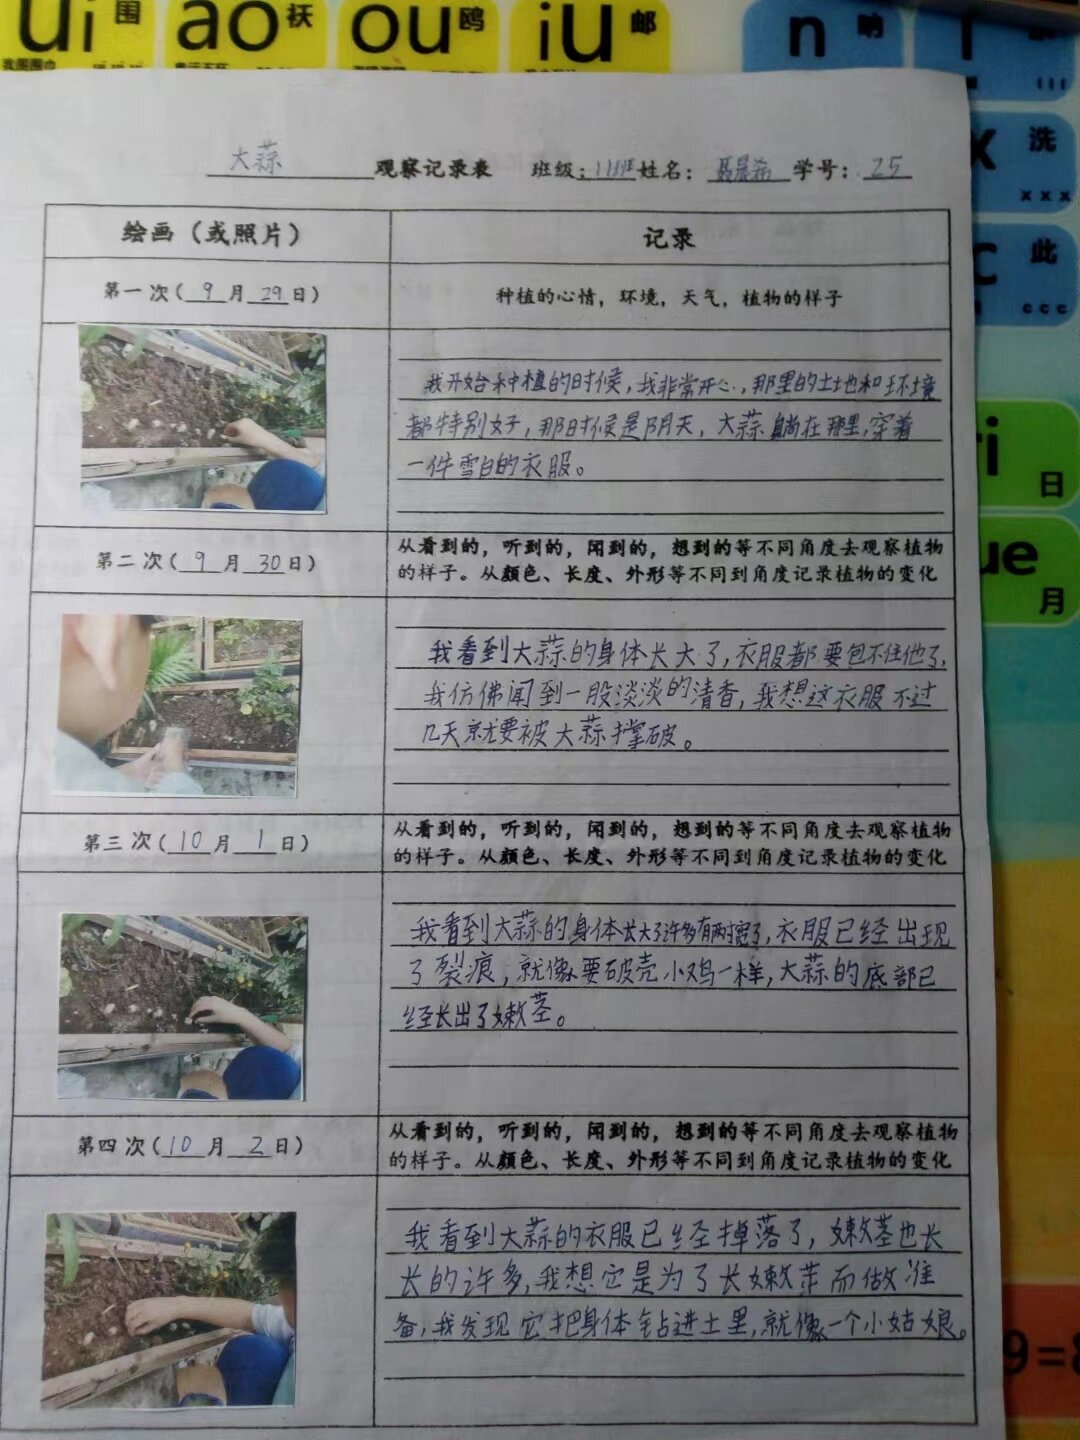 ui 围
ao 袄
ou 鸥
iu 邮
n
x 洗
x x x
c 此
c c c
日
ue 月
9=8
大蒜 观察记录表 班级: 姓名: 学号: 25
绘画（或照片） 记录
第一次（9月29日） 种植的心情，环境，天气，植物的样子
我开始种植的时候，我非常开心，那里的土地和环境
都特别好，那时候是阴天，大蒜躺在那里，穿着
一件雪白的衣服。
第二次（9月30日）
从看到的，听到的，闻到的，想到的等不同角度去观察植物
的样子。从颜色、长度、外形等不同到角度记录植物的变化
我看到大蒜的身体长大了，衣服都要包不住他了，
我仿佛闻到一股淡淡的清香，我想这衣服不过
几天就要被大蒜撑破。
第三次（10月1日）
从看到的，听到的，闻到的，想到的等不同角度去观察植物
的样子。从颜色、长度、外形等不同到角度记录植物的变化
我看到大蒜的身体长大了许多有两寸宽了，衣服已经出现
了裂痕，就像要破壳小鸡一样，大蒜的底部已
经长出了嫩茎。
第四次（10月2日）
从看到的，听到的，闻到的，想到的等不同角度去观察植物
的样子。从颜色、长度、外形等不同到角度记录植物的变化
我看到大蒜的衣服已经掉落了，嫩茎也长
长的许多，我想它是为了长嫩芽而做准
备，我发现它把身体钻进土里，就像一个小姑娘。